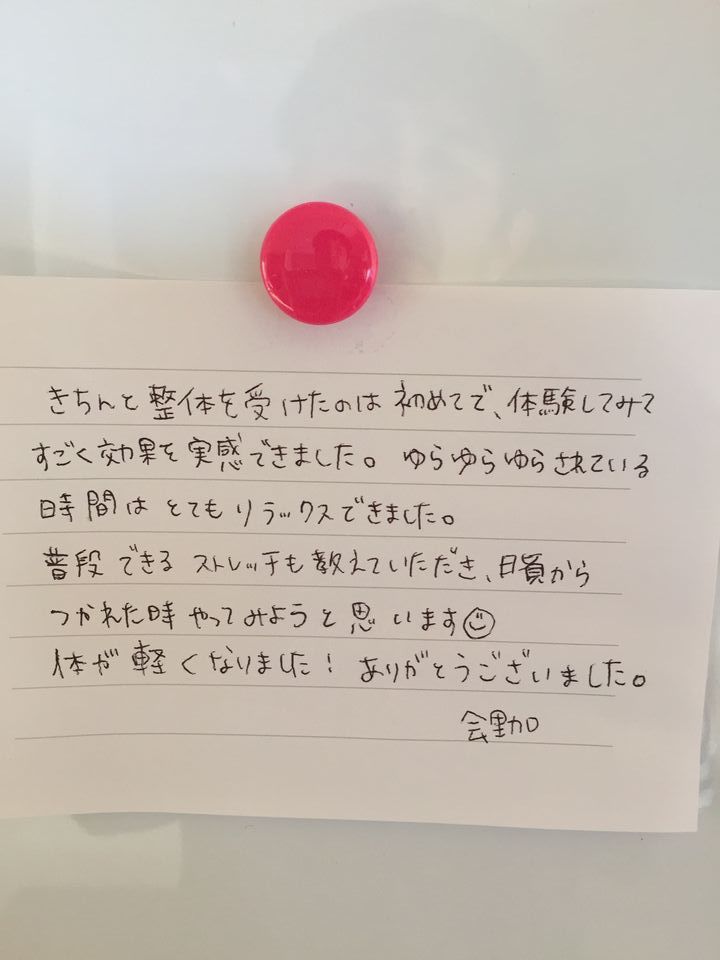 きちんと整体を受けたのは初めてで、体験してみて
すごく効果を実感できました。ゆらゆらゆらされている
時間はとてもリラックスできました。
普段できるストレッチも教えていただき、日頃から
つかれた時やってみようと思います☺
体が軽くなりました！ありがとうございました。